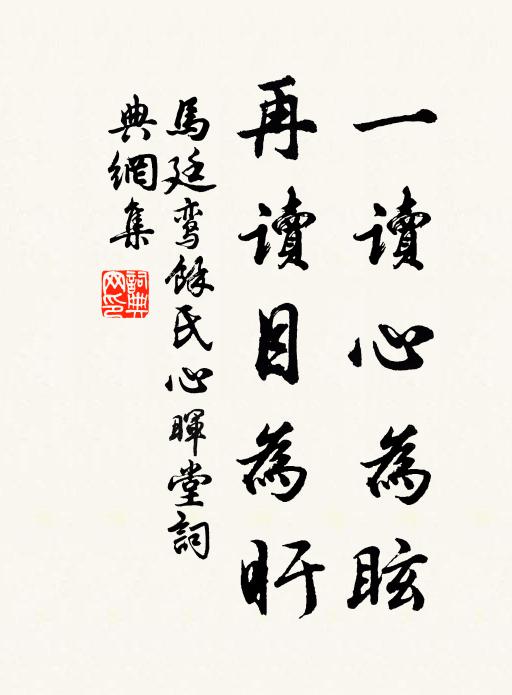 一讀心為眩
再讀目為盱
馬廷鸾餘氏心暉堂詞
典網集
詞典網印